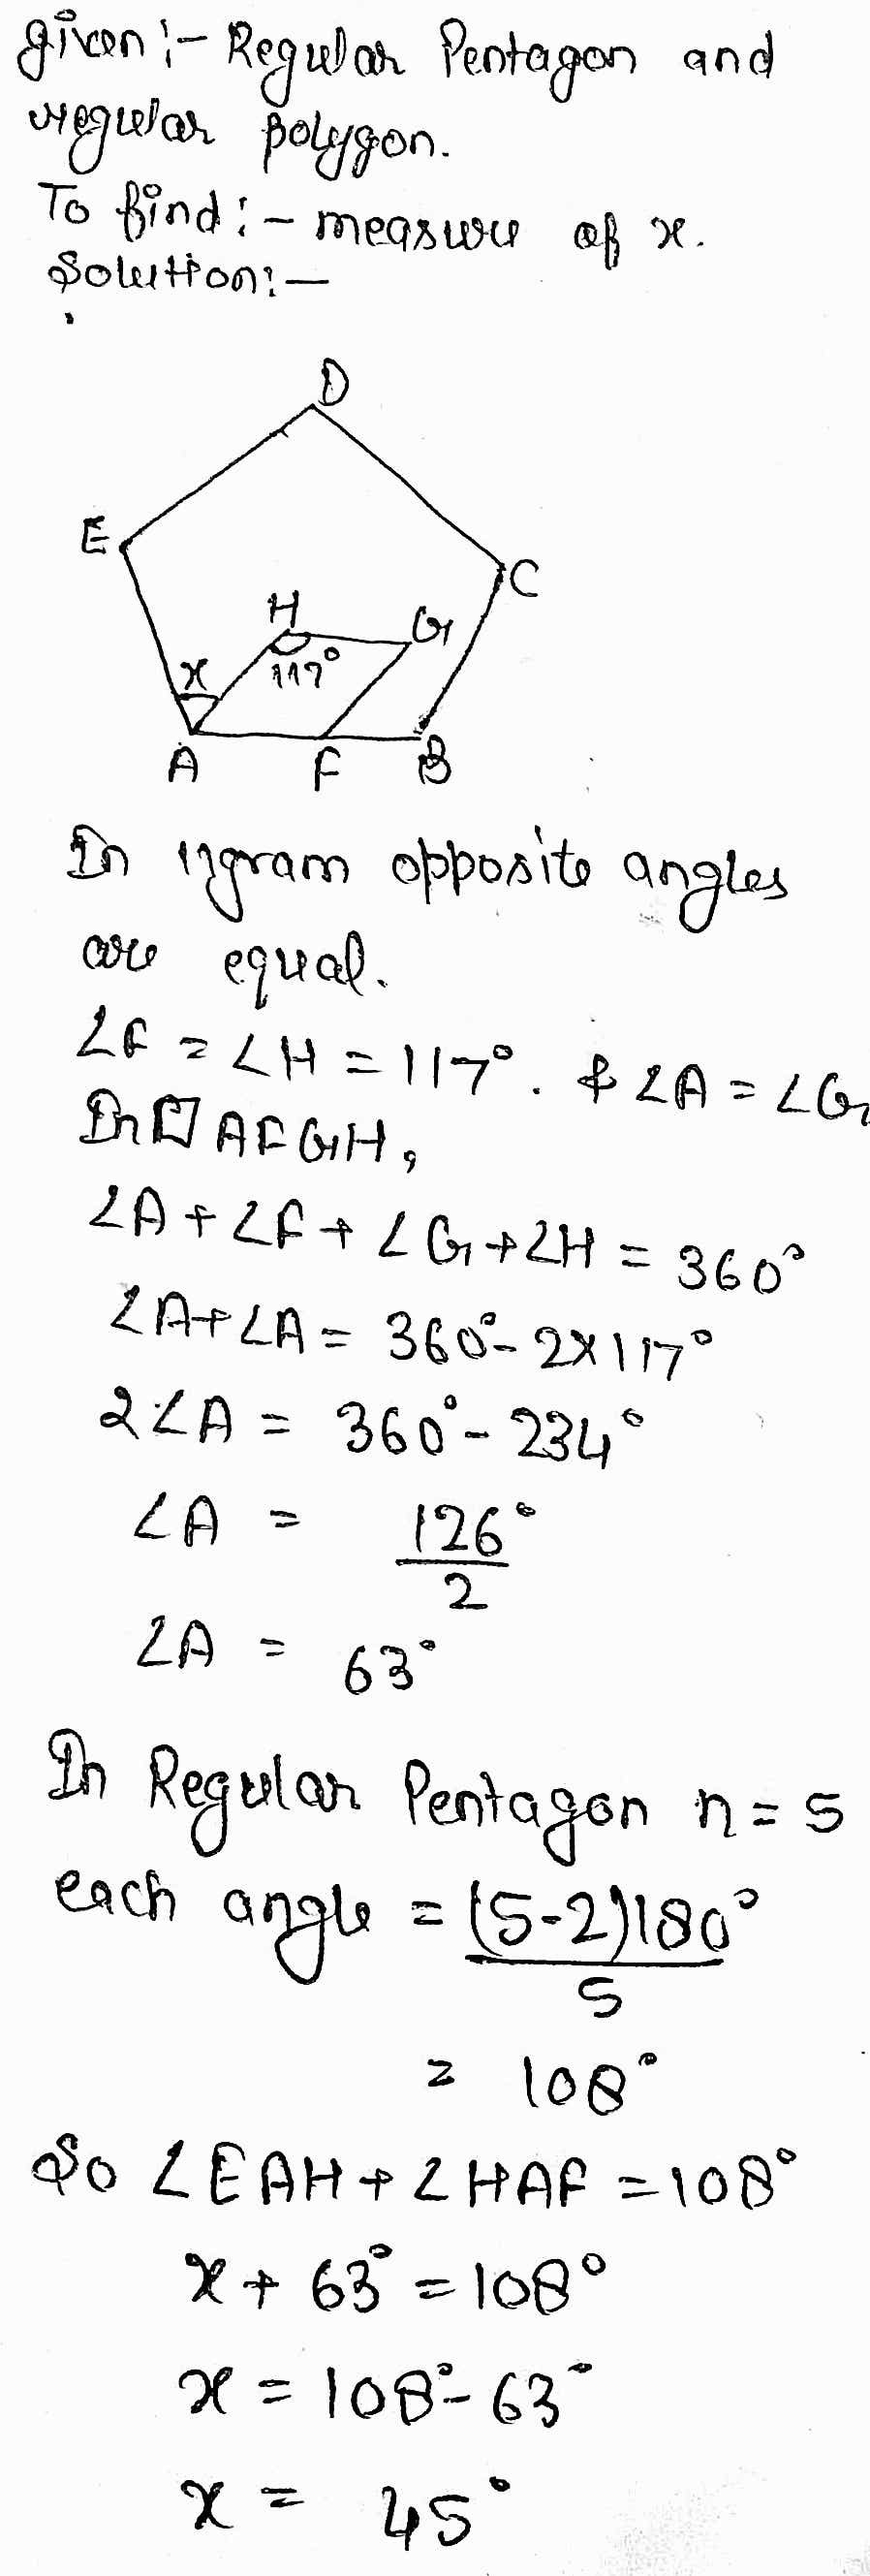 given :- Regular Pentagon and
regular polygon.
To find :- measure of x.
Solution :-
D
E
C
H
G
x
117°
A
F
B
In 11gram opposite angles
are equal.
∠F = ∠H = 117° . & ∠A = ∠G
In □ AFGH,
∠A + ∠F + ∠G + ∠H = 360°
∠A + ∠A = 360° - 2×117°
2∠A = 360° - 234°
∠A = 126°
2
∠A = 63°
In Regular Pentagon n = 5
each angle = (5-2)180°
5
= 108°
So ∠EAH + ∠HAF = 108°
x + 63° = 108°
x = 108° - 63°
x = 45°